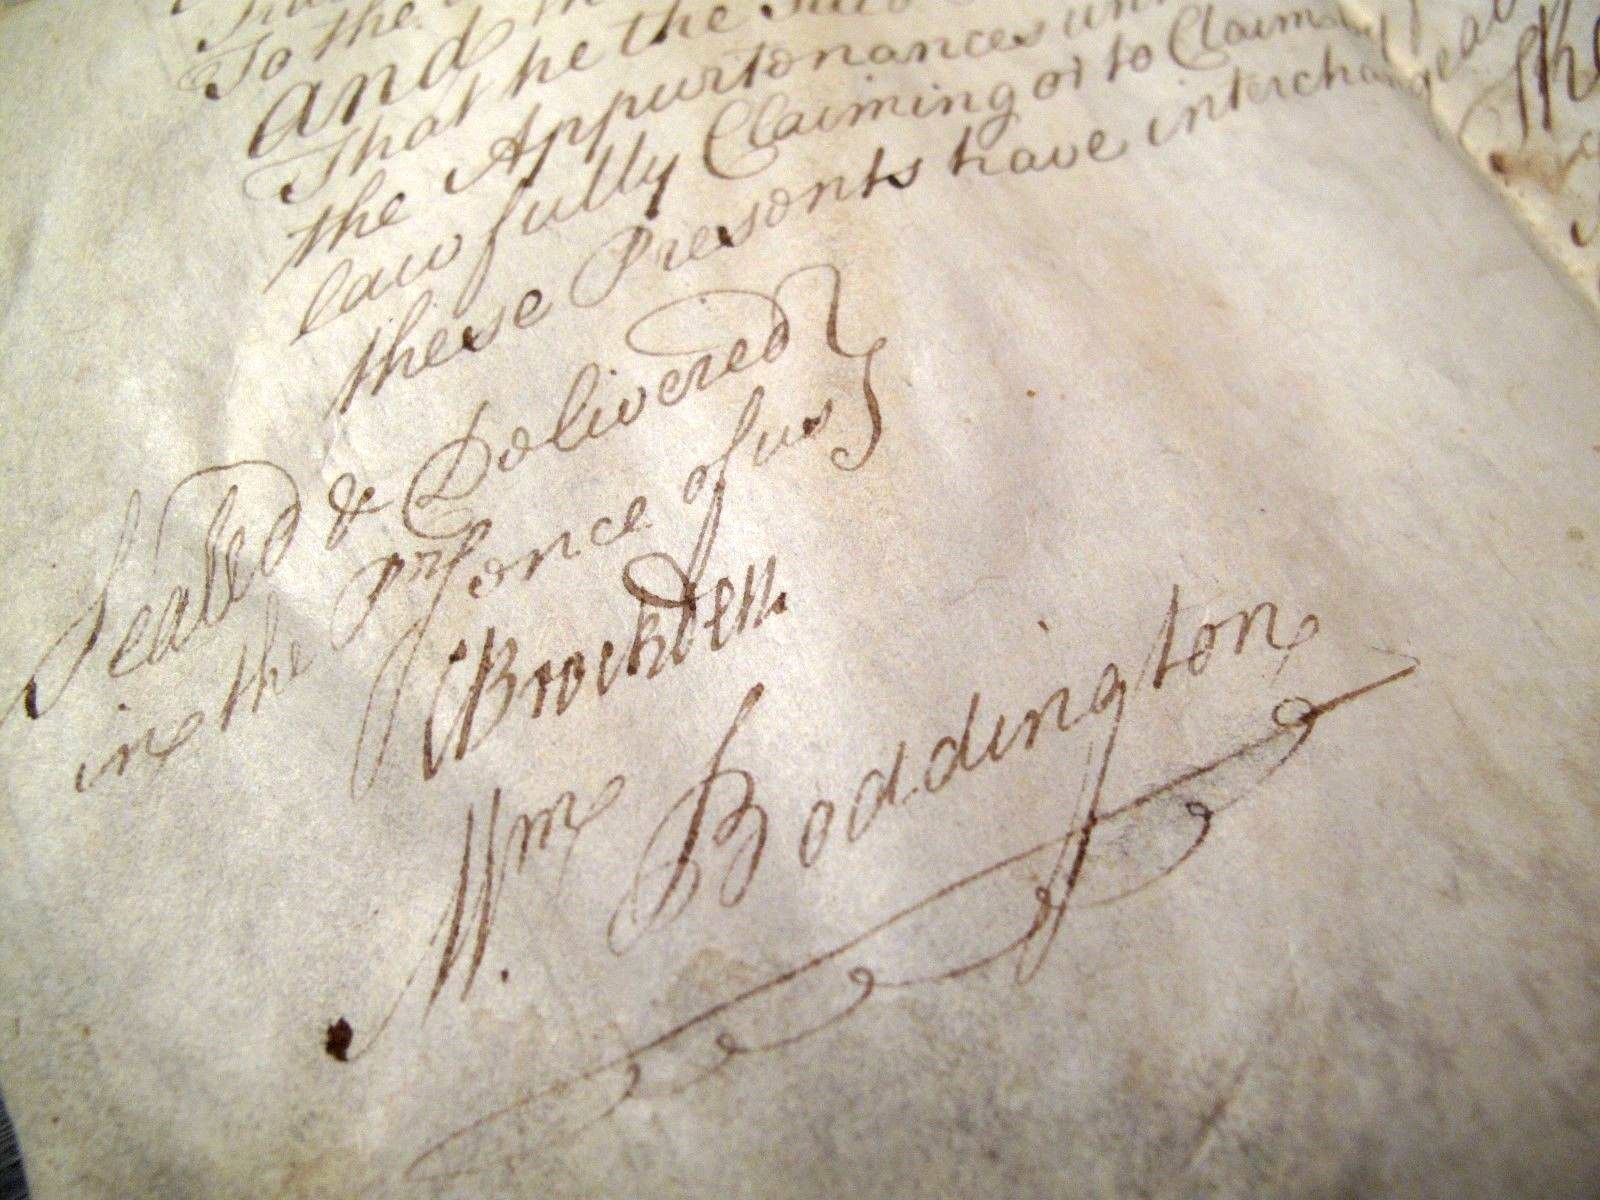 To the
and
That he the Said
the Appurtonances
lawfully Claiming or to Claim
these Presonts have interchangeab
Sealed & Delivered
in the Prsonce of us
CBrockden.
Wm. Boddington